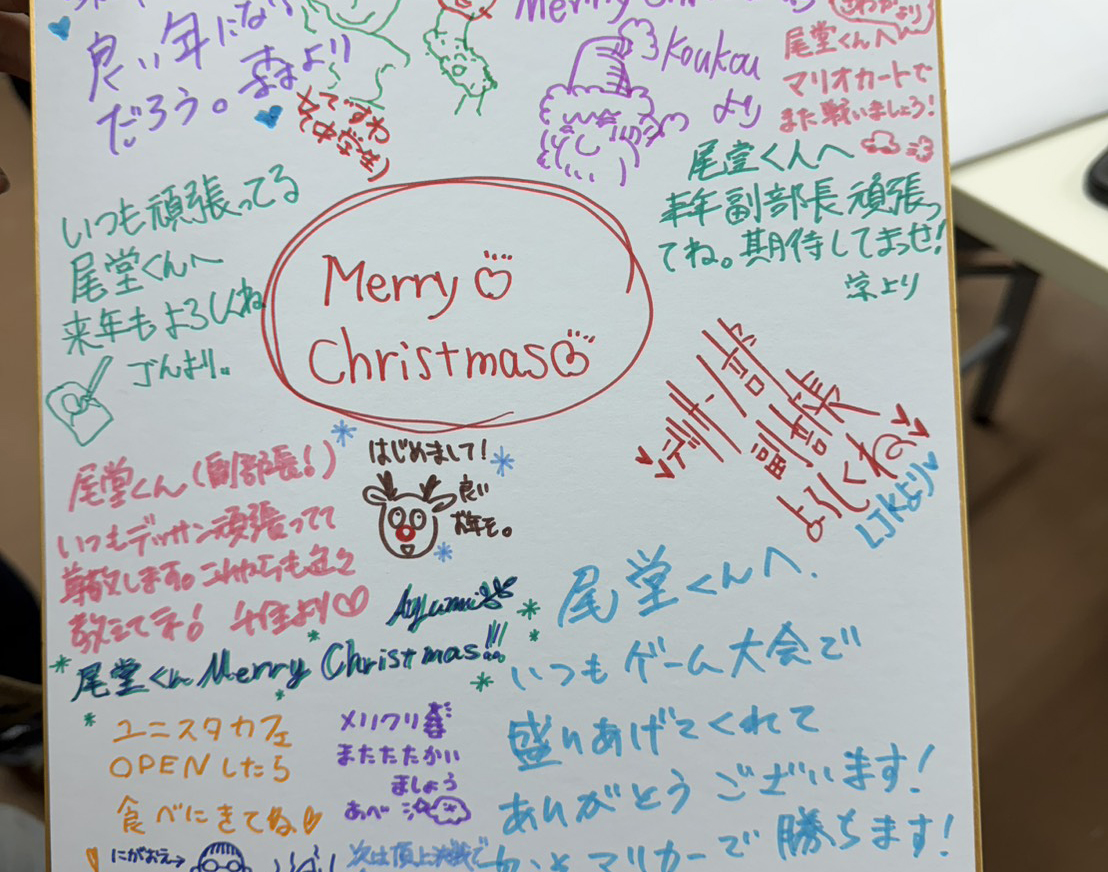 良い年にな
だろう。森より
Merry
Koukou
より
尾堂くんへ
マリオカートで
また戦いましょう!
尾堂くんへ
来年副部長頑張っ
てね。期待してまっせ!
栄より
いつも頑張ってる
尾堂くんへ
来年もよろしくね
ごんより。
Merry
Christmas
デザイン部
副部長
よろしくね
LJKより
尾堂くん(副部長!)
いつもデッサン頑張ってて
尊敬します。これからも色々
教えて下さい!
はじめまして!
良い
お年を。
Ayumi
尾堂くん Merry Christmas!!!
尾堂くんへ.
いつもゲーム大会で
盛りあげてくれて
ありがとうございます!
マリカーで勝ちます!
ユニスタカフェ
OPENしたら
食べにきてね
メリクリ
またたたかい
ましょう
あべ
にがおえ→
次は頂上決戦で